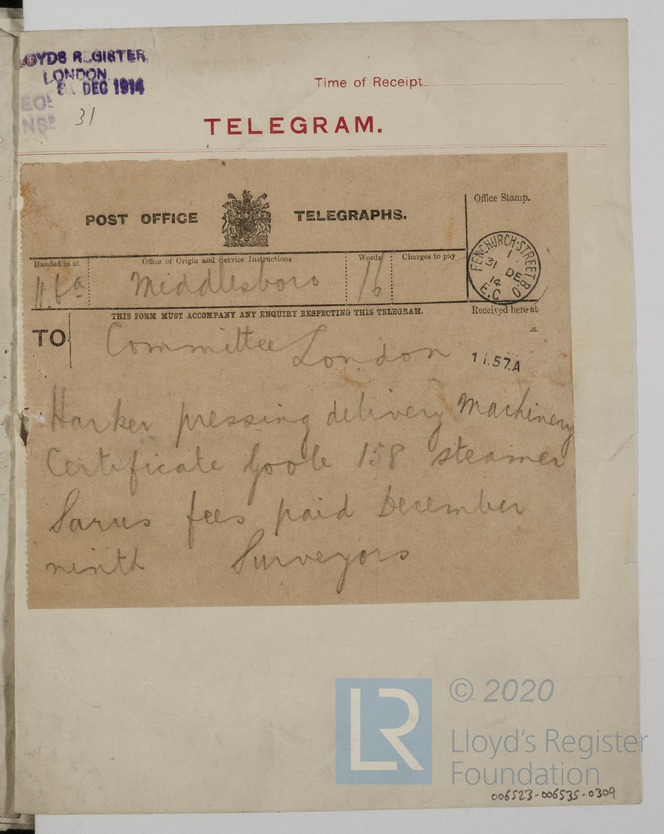 LOYDS REGISTER,
LONDON.
31 DEC 1914
31
Time of Receipt
TELEGRAM.
POST OFFICE TELEGRAPHS.
Office Stamp.
Handed in at
Office of Origin and Service Instructions
Words
Charges to pay
Middlesboro
16
FENCHURCH STREET B.O
1
31 DE
14
E.C
THIS FORM MUST ACCOMPANY ANY ENQUIRY RESPECTING THIS TELEGRAM.
Received here at
TO
Committee London
11.57.A
Harker pressing delivery machinery
Certificate Goole 158 steamer
Sarus fees paid December
ninth Surveyors
LR
© 2020
Lloyd's Register
Foundation
006523-006535-0309